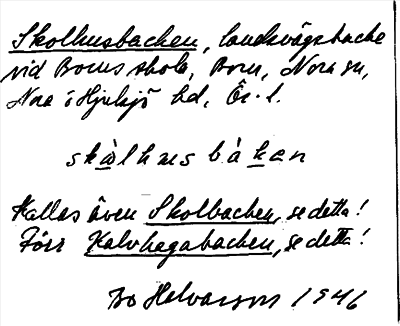 Skolhusbacken, landsvägsbacke
vid Borns skola, Born, Nora sn,
Nora o Hjulsjö hd, Ör. l.
skὼlhus bὰkan
Kallas även Skolbacken, se detta!
Förr Kalvhagabacken, se detta!
Bo Helvarson 1946